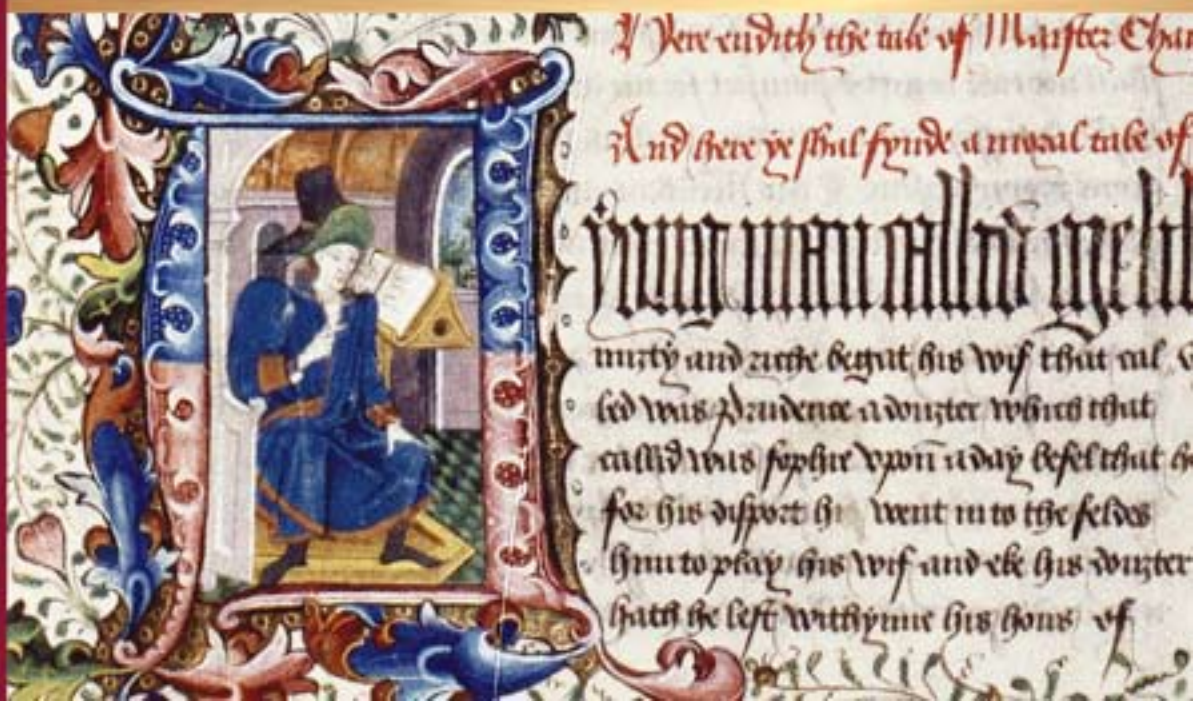 Here endith the tale of Maister Chau
And here ye shal fynde a moral tale of
yong man callid Melib
myty and riche begat his wif that cal
led was Prudence a douzter which that
callid was sophie vpon a day befel that he
for his disport he went in to the feldes
him to play his wif and eke his douzter
hath he left withynne his hous of